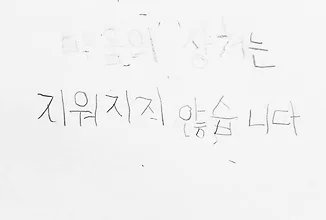 마음의 상처는
지워지지 않습니다